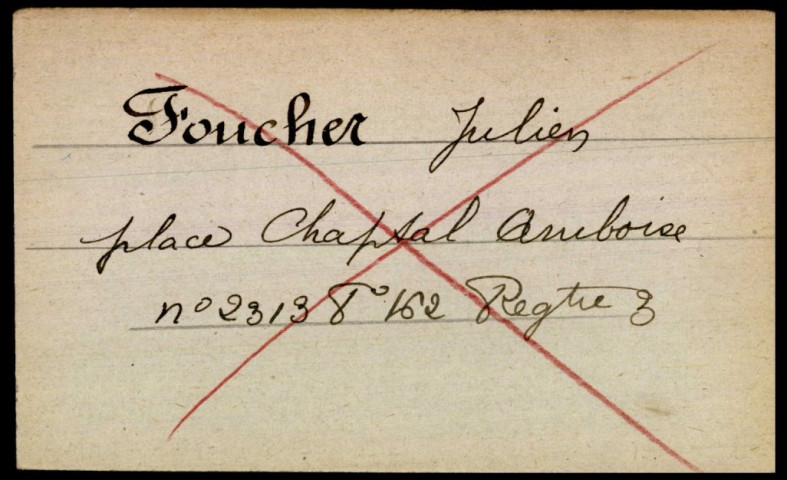 Foucher Julien
place Chaptal Amboise
n° 2313 F° 162 Regtre 3